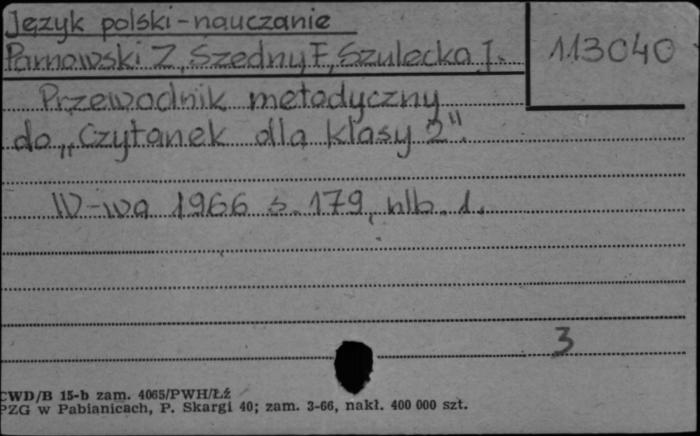 Język polski-nauczanie
Parnowski Z, Szedny F, Szulecka J.
113040
Przewodnik metodyczny
do „Czytanek dla klasy 2".
W-wa 1966 s. 179, nlb. 1.
3
CWD/B 15-b zam. 4065/PWH/Łź
PZG w Pabianicach, P. Skargi 40; zam. 3-66, nakł. 400 000 szt.